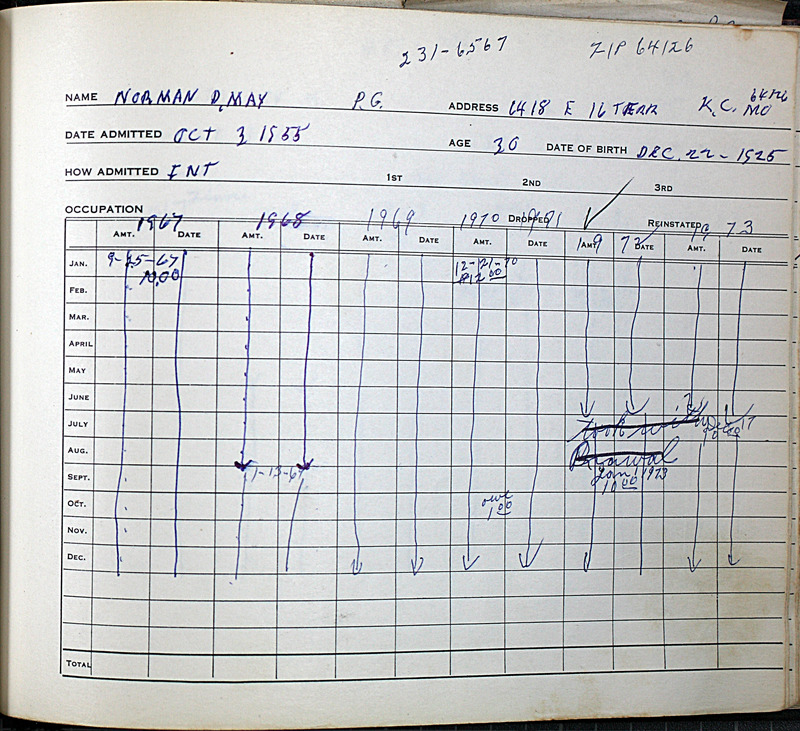 231-6567 ZIP 64126
NAME NORMAN D. MAY P.G. ADDRESS 6418 E 16 TERR K.C. MO 64126
DATE ADMITTED OCT 3 1955 AGE 30 DATE OF BIRTH DEC. 22-1925
HOW ADMITTED INT 1ST 2ND 3RD
OCCUPATION DROPPED REINSTATED
1967 1968 1969 1970 1971 1972 1973
AMT. DATE AMT. DATE AMT. DATE AMT. DATE AMT. DATE AMT. DATE
JAN. 9-25-67 12-21-70
10.00 $12.00
FEB.
MAR.
APRIL
MAY
JUNE
JULY Took with Dec 17
10.00
AUG. Drawal
SEPT. 1-13-69 Jan 1 1973
10.00
OCT. owe
1.00
NOV.
DEC.
TOTAL